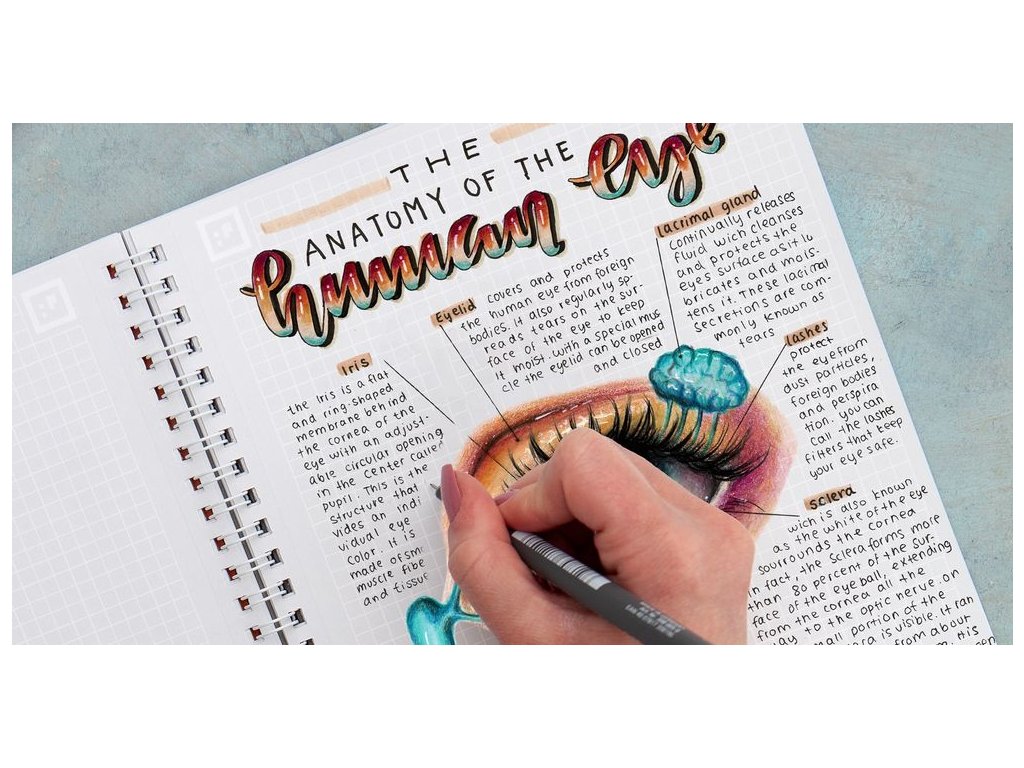 THE
ANATOMY OF THE
human eye
Iris
the Iris is a flat
and ring-shaped
membrane behind
the cornea of the
eye with an adjust-
able circular opening
in the center called
pupil. This is the
structure that
vides an indi
vidual eye
color. It is
made of sm
muscle fibe
and tissue
Eyelid
covers and protects
the human eye from foreign
bodies. It also regularly sp-
reads tears on the sur-
face of the eye to keep
it moist. with a special mus
cle the eyelid can be opened
and closed
lacrimal gland
continually releases
fluid wich cleanses
and protects the
eyes surface as it lu
bricates and mois-
tens it. These lacimal
secretions are com-
monly known as
tears
lashes
protect
the eye from
dust particles,
foreign bodies
and perspira
tion. you can
call the lashes
filters that keep
your eye safe.
sclera
wich is also known
as the white of the eye
sourrounds the cornea
In fact, the sclera forms more
than 80 percent of the sur-
face of the eyeball, extending
from the cornea all the
way to the optic nerve. on
mall portion of the
ra is visible. it ran
from about
his